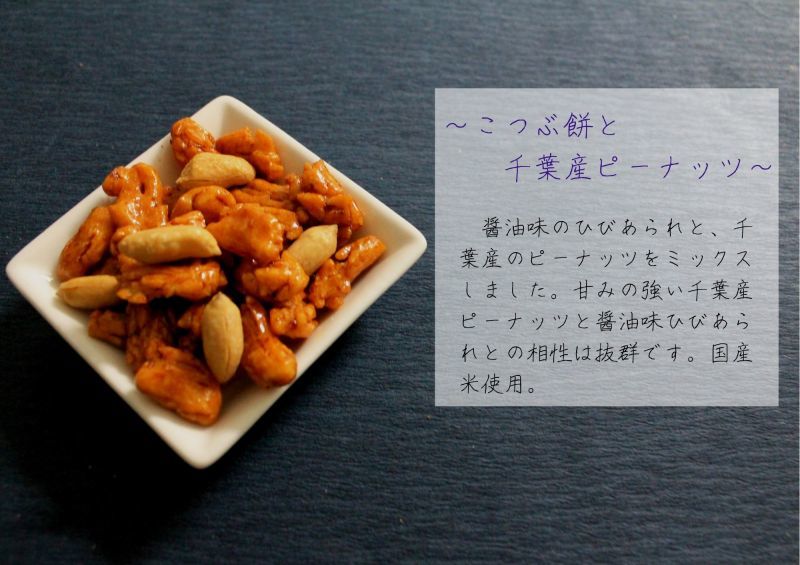 ～こつぶ餅と
千葉産ピーナッツ～
醤油味のひびあられと、千
葉産のピーナッツをミックス
しました。甘みの強い千葉産
ピーナッツと醤油味ひびあら
れとの相性は抜群です。国産
米使用。